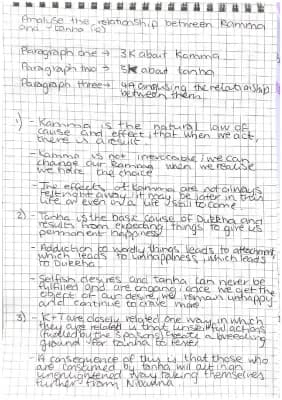 Analise the relationship between Kamma
and tanha (12)
Paragraph one → 3K about Kamma
Paragraph two → 5K about tanha
Paragraph three → 4A analysing the relationship
between them
1) - Kamma is the natural law of
cause and effect, that when we act,
there is a result
- Kamma is not irrevocable; we can
change our Kamma when we realise
we have the choice
- The effects of Kamma are not always
felt right away, it may be later in this
life or even in a life still to come
2) - Tanha is the basic cause of Dukkha and
results from expecting things to give us
permanent happiness
- Adduction to wordly things leads to attachment,
which leads to unhappiness, which leads
to Dukkha
- Selfish desires and tanha can never be
fulfilled and are ongoing; once we get the
object of our desire, we remain unhappy
and continue to crave more
3) - K + T are closely related one way in which
they are related is that unskillful actions
(fuelled by the 3 poisons) create a breeding
ground for tanha to fever
- A consequence of this is that those who
are consumed by tanha will act in an
unenlightened way taking themselves
further from Nibanna